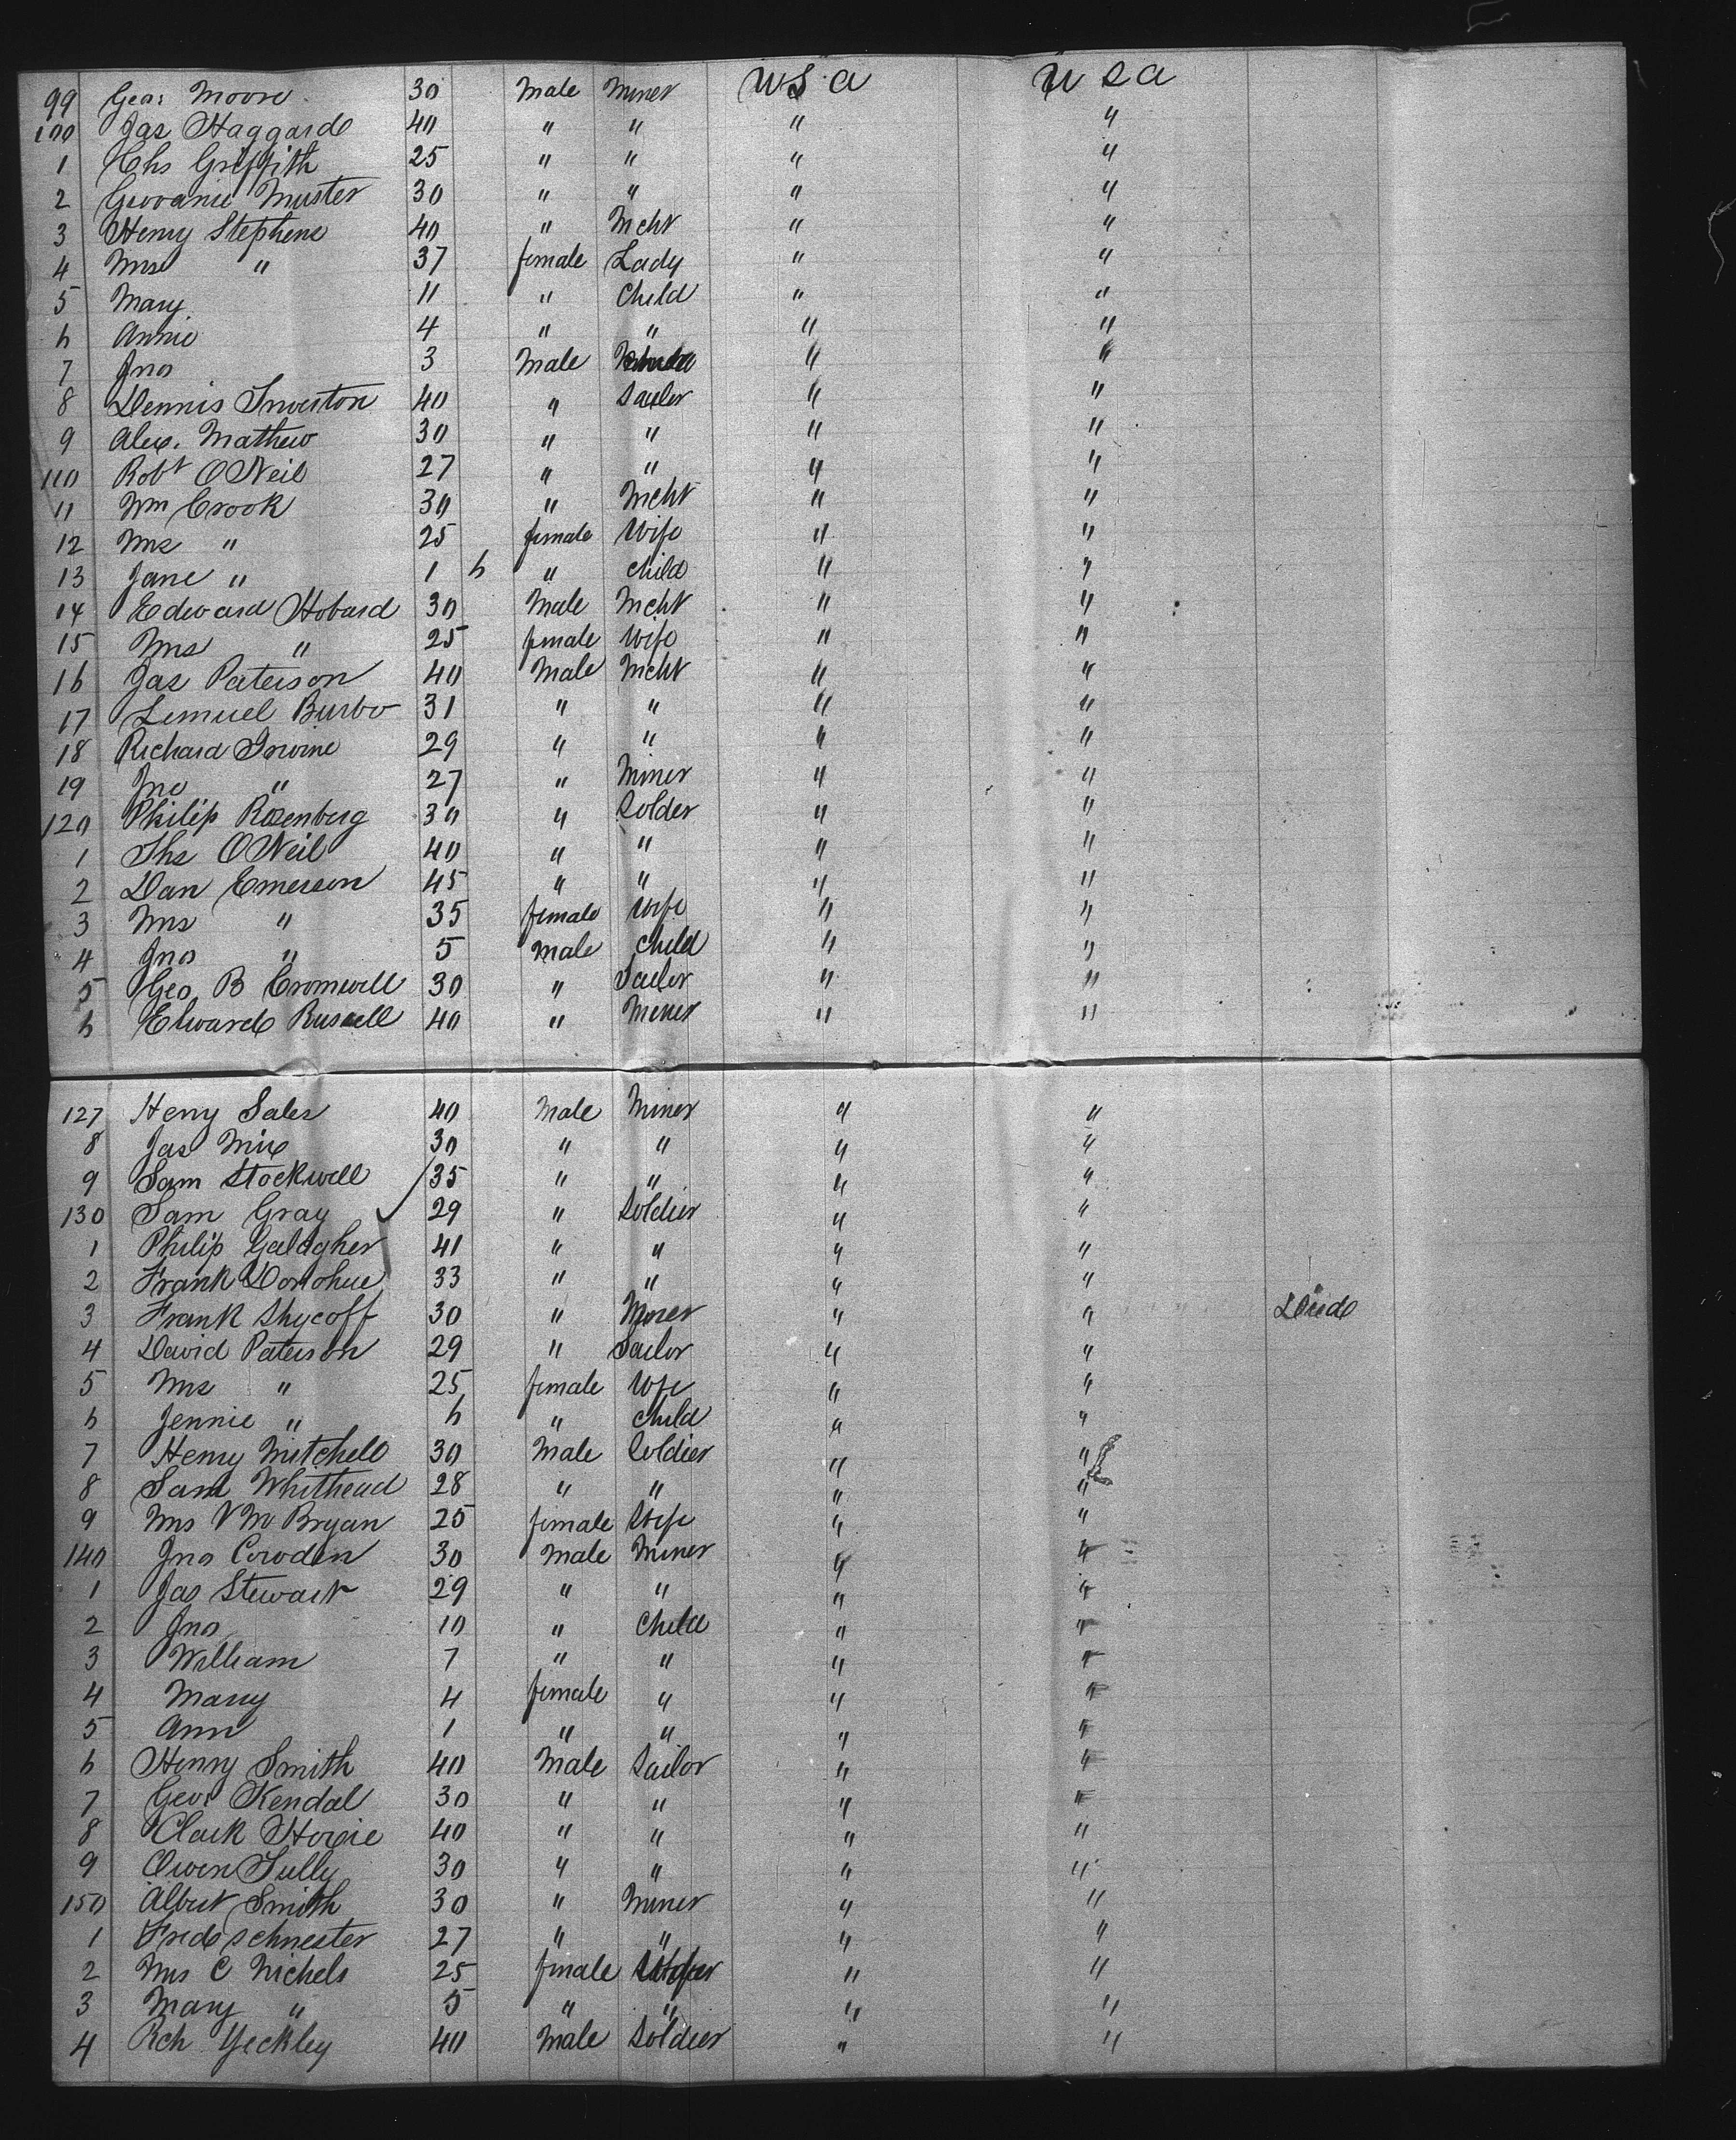 99 Geo: Moore 30 Male Miner U S A U S A
100 Jas Haggard 40 " " " "
1 Chs Griffith 25 " " " "
2 Muster 30 " " " "
3 Henry Stephens 40 " Mcht " "
4 Mrs " 37 female Lady " "
5 Mary 11 " Child " "
6 Annie 4 " " " "
7 Jno 3 Male " "
8 Dennis 40 " Sailor " "
9 Alex. Mathew 30 " " " "
110 Robt O Neil 27 " " " "
11 Wm Crook 30 " Mcht " "
12 Mrs " 25 female Wife " "
13 Jane " 1 6 " child " "
14 Edward Hobard 30 Male Mcht " "
15 Mrs " 25 female Wife " "
16 Jas Paterson 40 Male Mcht " "
17 Lemuel 31 " " " "
18 Richard Irvine 29 " " " "
19 Jno " 27 " Miner " "
120 Philip Rosenberg 30 " Solder " "
1 Ths O Neil 40 " " " "
2 Dan Emerson 45 " " " "
3 Mrs " 35 female Wife " "
4 Jno " 5 Male Child " "
5 Geo B Cromwell 30 " Sailor " "
6 Edward Russell 40 " Miner " "
127 Henry Sales 40 Male Miner " "
8 Jas Mix 30 " " " "
9 Sam Stockwell 35 " " " "
130 Sam Gray 29 " Soldier " "
1 Philip Galagher 41 " " " "
2 Frank Donohue 33 " " " "
3 Frank Shycoff 30 " Miner " " Died
4 David Paterson 29 " Sailor " "
5 Mrs " 25 female Wife " "
6 Jennie " 6 " Child " "
7 Henry Mitchell 30 Male Soldier " "
8 Sam Whithead 28 " " " "
9 Mrs V M Bryan 25 female Wife " "
140 Jno Cowden 30 Male Miner " "
1 Jas Stewart 29 " " " "
2 Jno 10 " Child " "
3 William 7 " " " "
4 Mary 4 female " " "
5 Ann 1 " " " "
6 Henry Smith 40 Male Sailor " "
7 Geo: Kendal 30 " " " "
8 Clark 40 " " " "
9 Owen Tully 30 " " " "
150 Albert Smith 30 " Miner " "
1 Fred Schnester 27 " " " "
2 Mrs C Nichels 25 female " "
3 Mary " 5 " " " "
4 Rch Yeckley 40 Male Soldier " "